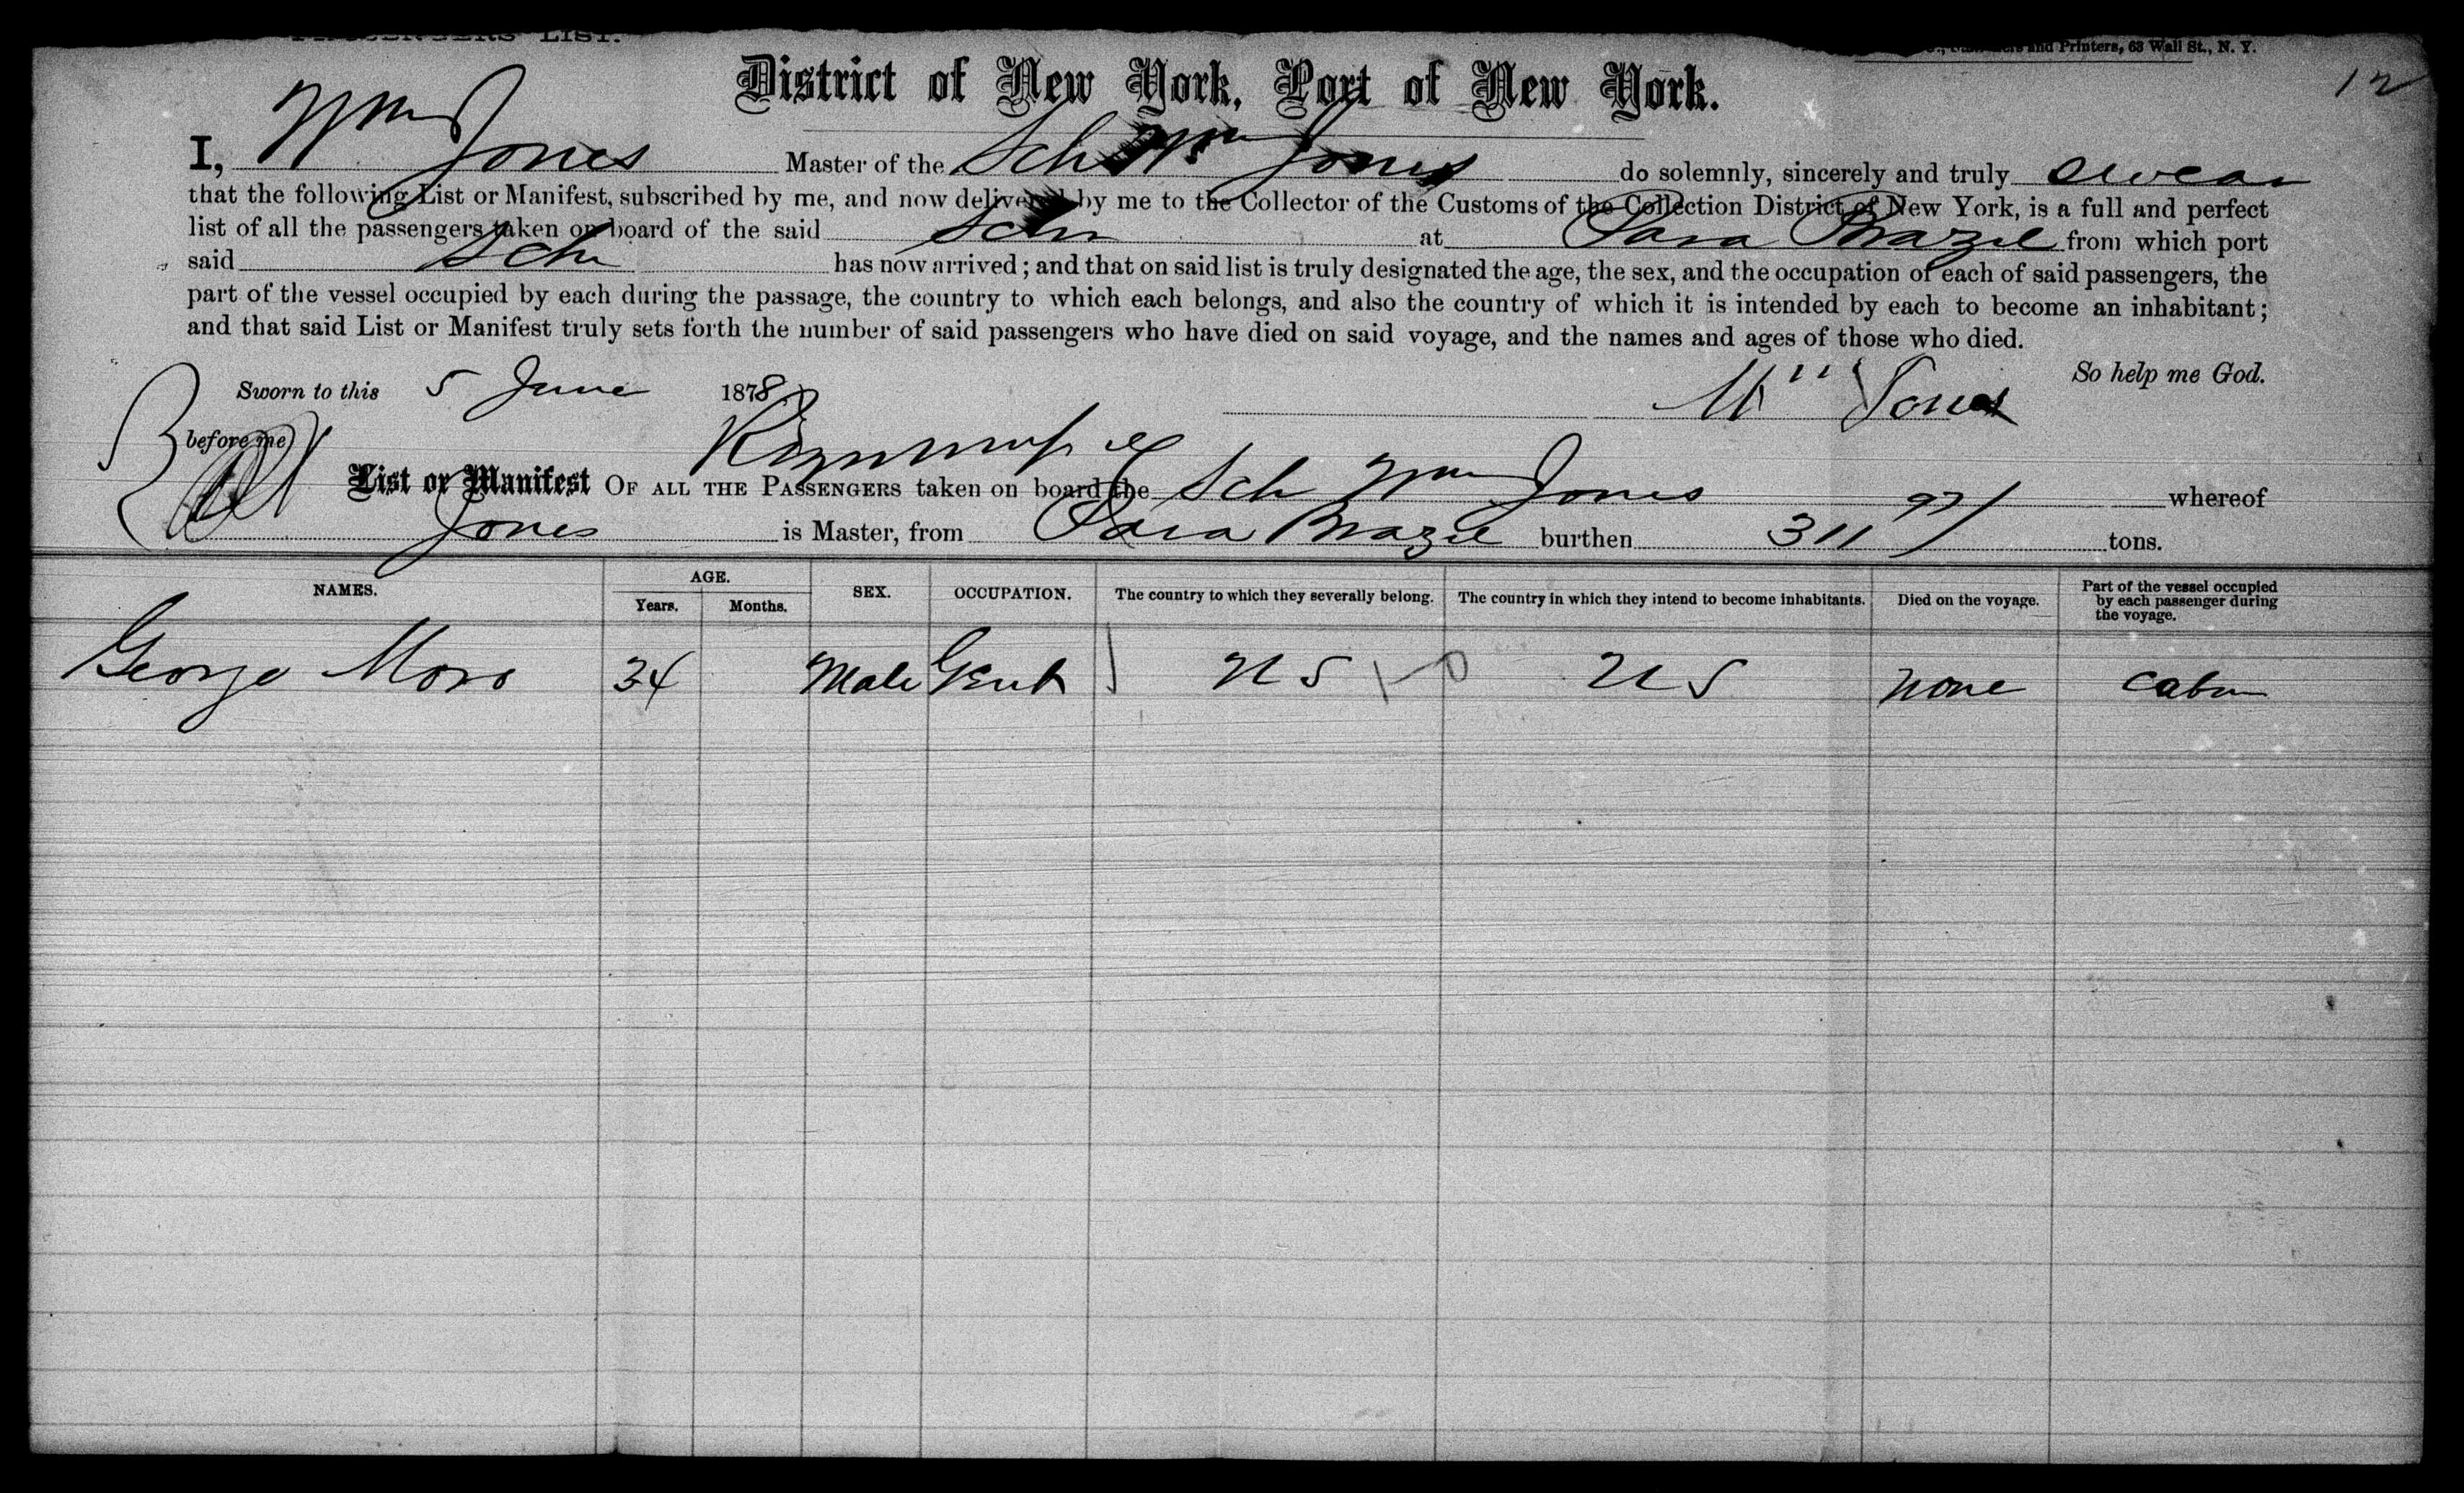 PASSENGERS LIST.
and Printers, 63 Wall St., N. Y.
12
District of New York, Port of New York.
I, Wm Jones Master of the Sch Wm Jones do solemnly, sincerely and truly swear
that the following List or Manifest, subscribed by me, and now delivered by me to the Collector of the Customs of the Collection District of New York, is a full and perfect
list of all the passengers taken on board of the said Sch at Para Brazil from which port
said Sch has now arrived; and that on said list is truly designated the age, the sex, and the occupation of each of said passengers, the
part of the vessel occupied by each during the passage, the country to which each belongs, and also the country of which it is intended by each to become an inhabitant;
and that said List or Manifest truly sets forth the number of said passengers who have died on said voyage, and the names and ages of those who died.
So help me God.
Sworn to this 5 June 1878 Wm Jones
before me
List or Manifest OF ALL THE PASSENGERS taken on board the Sch Wm Jones whereof
Jones is Master, from Para Brazil burthen 311 97/ tons.
NAMES. AGE. Years. Months. SEX. OCCUPATION. The country to which they severally belong. The country in which they intend to become inhabitants. Died on the voyage. Part of the vessel occupied by each passenger during the voyage.
George Moro 34 Male Gent U S U S None Cabin